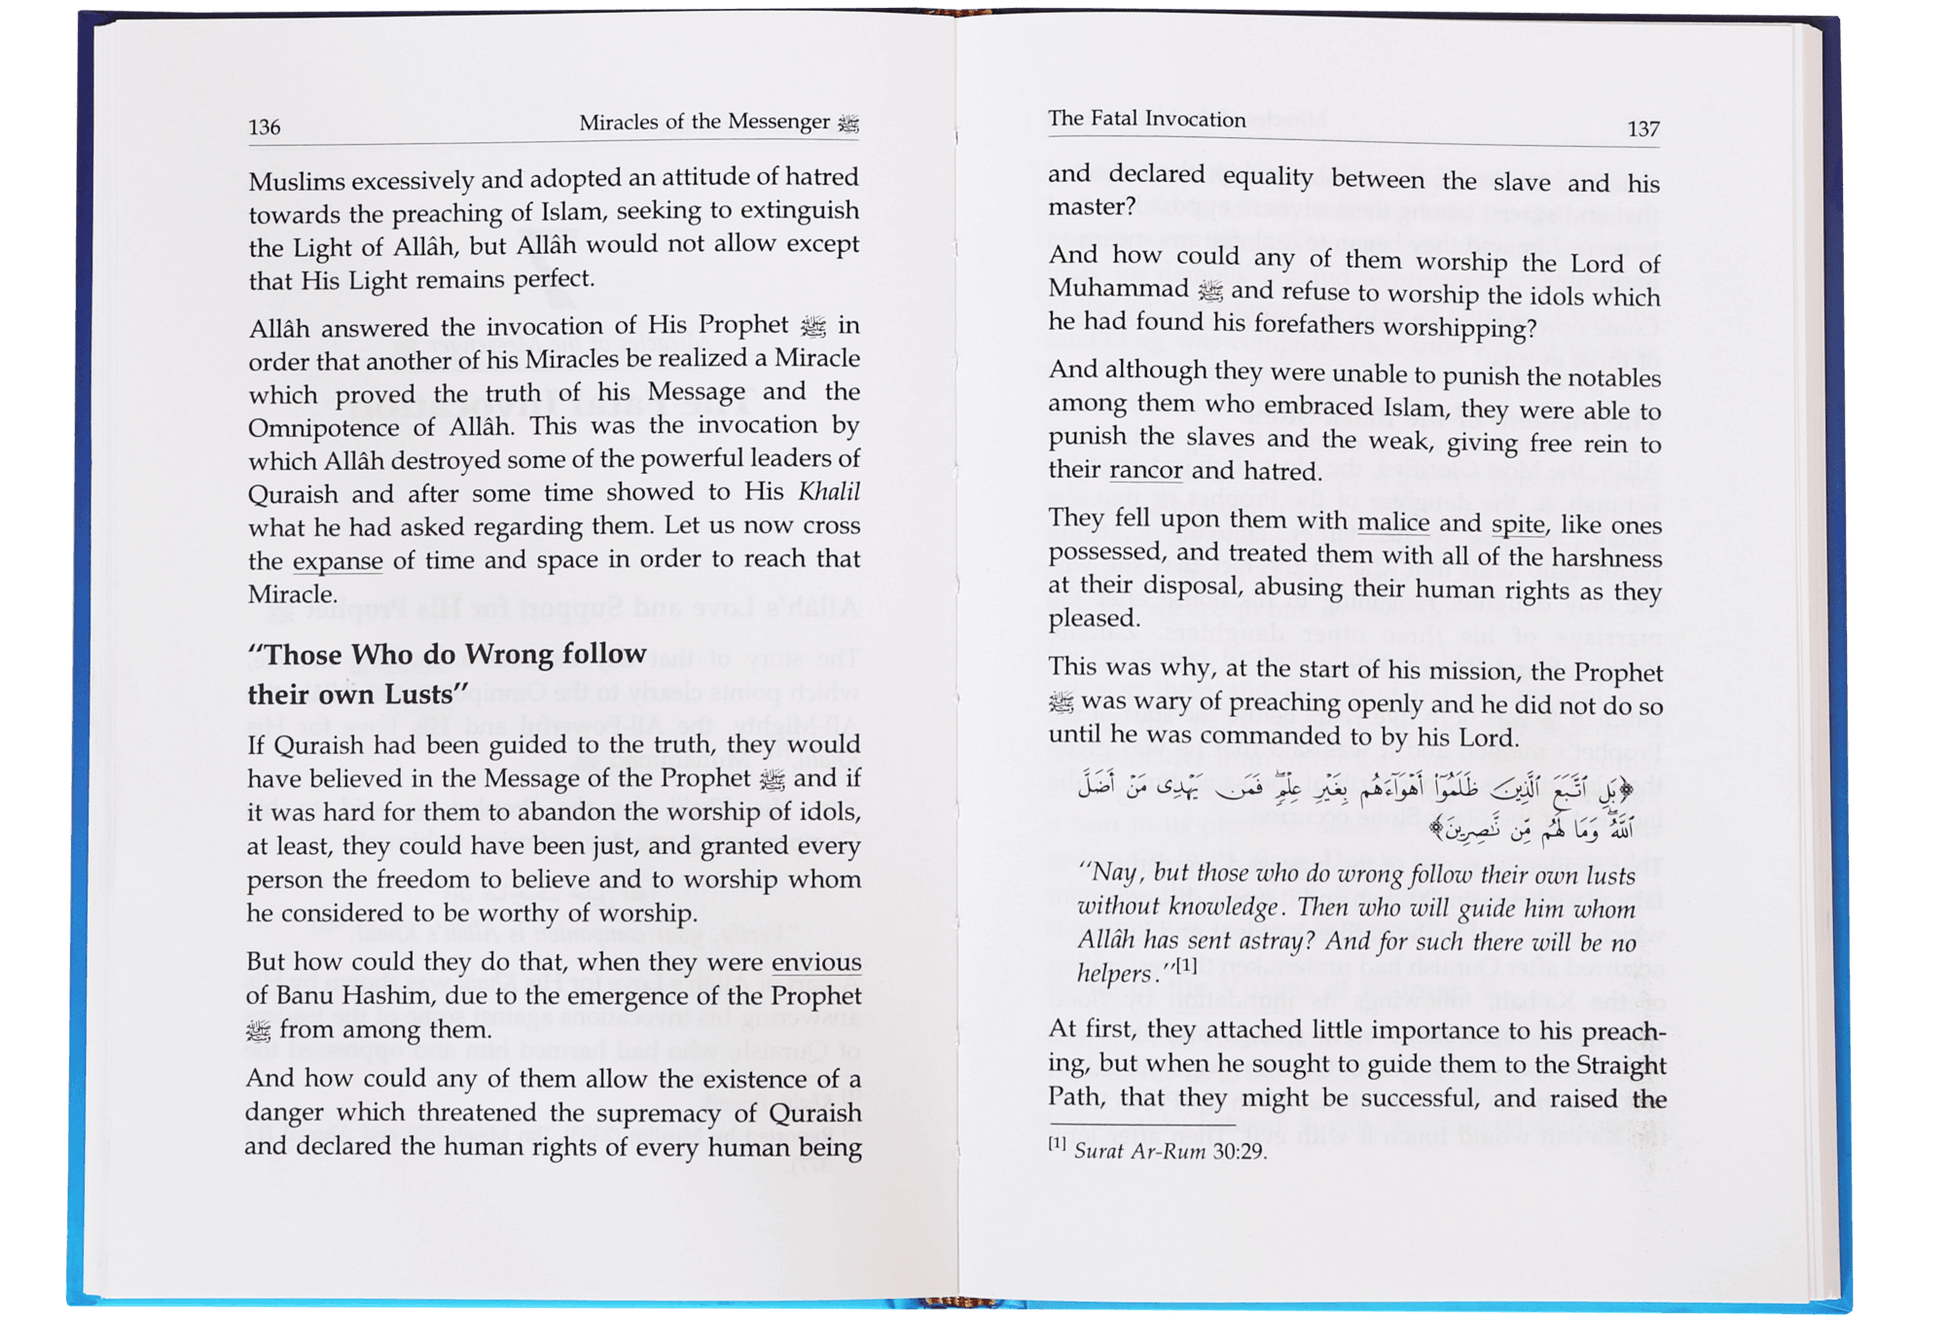 136
Miracles of the Messenger ﷺ
Muslims excessively and adopted an attitude of hatred
towards the preaching of Islam, seeking to extinguish
the Light of Allâh, but Allâh would not allow except
that His Light remains perfect.
Allâh answered the invocation of His Prophet ﷺ in
order that another of his Miracles be realized a Miracle
which proved the truth of his Message and the
Omnipotence of Allâh. This was the invocation by
which Allâh destroyed some of the powerful leaders of
Quraish and after some time showed to His Khalil
what he had asked regarding them. Let us now cross
the expanse of time and space in order to reach that
Miracle.
“Those Who do Wrong follow
their own Lusts”
If Quraish had been guided to the truth, they would
have believed in the Message of the Prophet ﷺ and if
it was hard for them to abandon the worship of idols,
at least, they could have been just, and granted every
person the freedom to believe and to worship whom
he considered to be worthy of worship.
But how could they do that, when they were envious
of Banu Hashim, due to the emergence of the Prophet
ﷺ from among them.
And how could any of them allow the existence of a
danger which threatened the supremacy of Quraish
and declared the human rights of every human being
The Fatal Invocation
137
and declared equality between the slave and his
master?
And how could any of them worship the Lord of
Muhammad ﷺ and refuse to worship the idols which
he had found his forefathers worshipping?
And although they were unable to punish the notables
among them who embraced Islam, they were able to
punish the slaves and the weak, giving free rein to
their rancor and hatred.
They fell upon them with malice and spite, like ones
possessed, and treated them with all of the harshness
at their disposal, abusing their human rights as they
pleased.
This was why, at the start of his mission, the Prophet
ﷺ was wary of preaching openly and he did not do so
until he was commanded to by his Lord.
﴿بَلِ ٱتَّبَعَ ٱلَّذِينَ ظَلَمُوٓا۟ أَهْوَآءَهُم بِغَيْرِ عِلْمٍ ۖ فَمَن يَهْدِى مَنْ أَضَلَّ
ٱللَّهُ ۖ وَمَا لَهُم مِّن نَّـٰصِرِينَ﴾
“Nay, but those who do wrong follow their own lusts
without knowledge. Then who will guide him whom
Allâh has sent astray? And for such there will be no
helpers.”[1]
At first, they attached little importance to his preach-
ing, but when he sought to guide them to the Straight
Path, that they might be successful, and raised the
[1] Surat Ar-Rum 30:29.